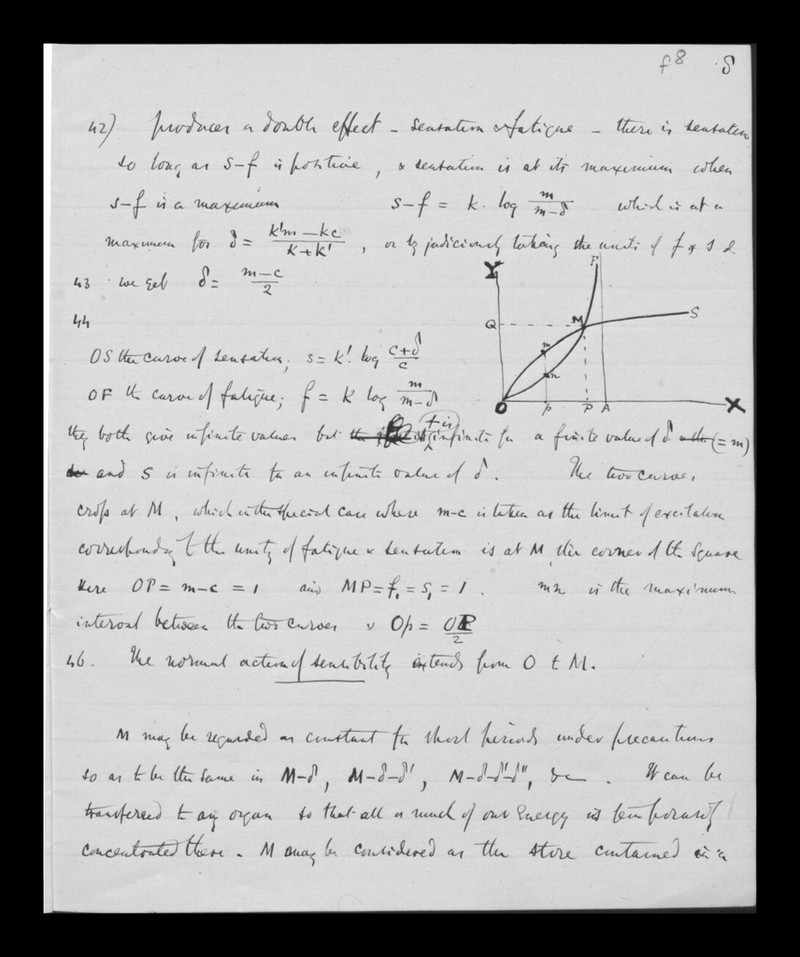 f 8 8
42) produces a double effect – sensation & fatigue – there is sensation
so long as s–f is positive, & sensation is at its maximum when
s–f is a maximum s–f = k. log m/m–δ which is at a
maximum for δ = k'm – kc / k+k' , or by judiciously taking the units of f & s &.
43 we get δ = m–c / 2
44
OS the curve of sensation; s = k'. log c+δ / c
OF the curve of fatigue; f = k log m / m–δ
Y F S Q M m n O p P A X
they both give infinite values but f is infinite for a finite value of δ (= m)
and S is infinite for an infinite value of δ. The two curves
cross at M, which in the special case where m–c is taken as the limit of excitation
corresponding to the unity of fatigue & sensation is at M, the corner of the square
Here OP = m–c = 1 and MP = f₁ = s₁ = 1. mn is the maximum
interval between the two curves & Op = OP/2
46. The normal action of sensibility extends from O to M.
M may be regarded as constant for short periods under precautions
so as to be the same in M–δ, M–δ–δ', M–δ–δ'–δ'', &c. It can be
transferred to any organ so that all or much of our Energy is temporarily
concentrated there. M may be considered as the store contained in a